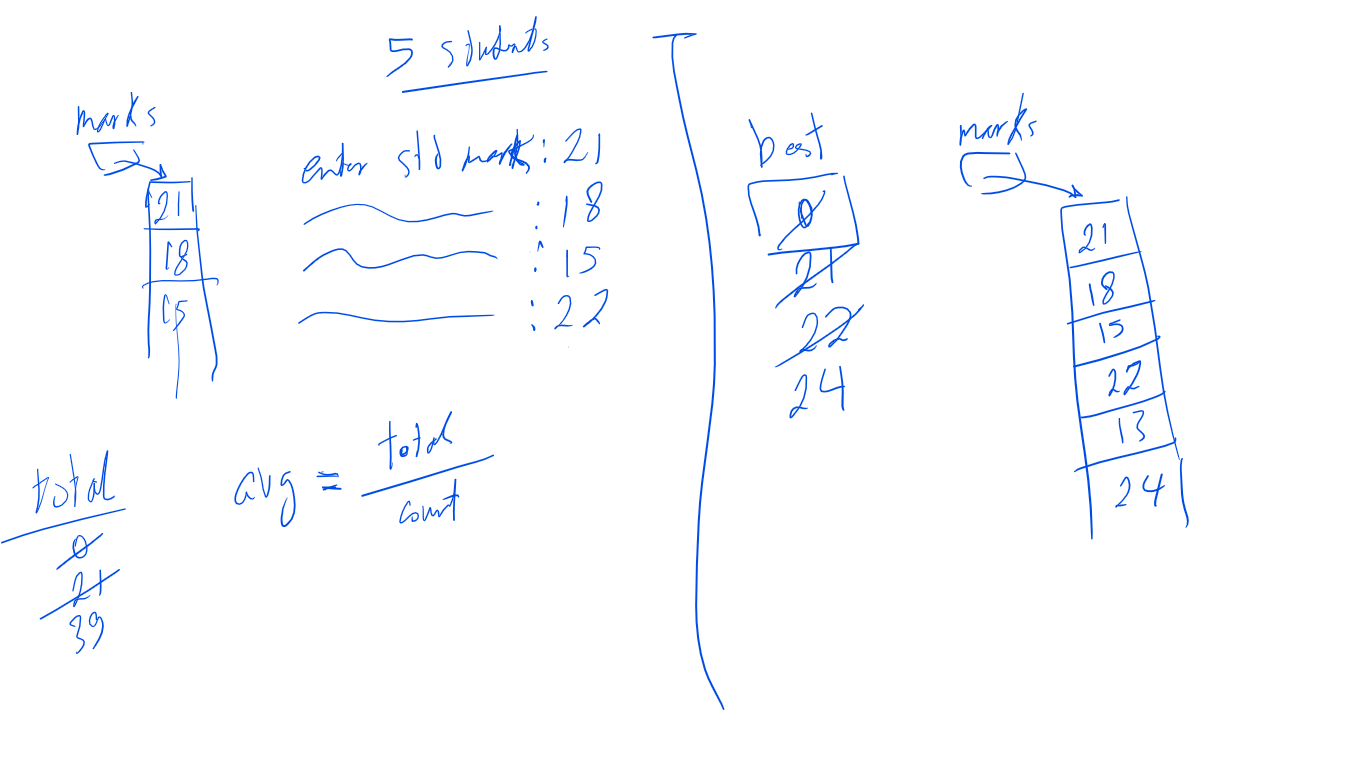 5 students
marks
21
18
15
enter std mark: 21
: 18
: 15
: 22
total
0
21
39
avg = total
count
best
0
21
22
24
marks
21
18
15
22
13
24